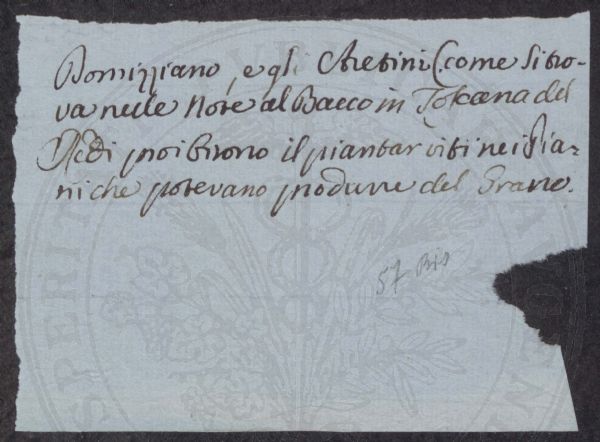 Domizziano, e gli Aretini (come si tro-
va nelle Note al Bacco in Toscana del
Redi proibirono il piantar viti nei Pia-
ni che potevano produrre del Grano.
57 Bis